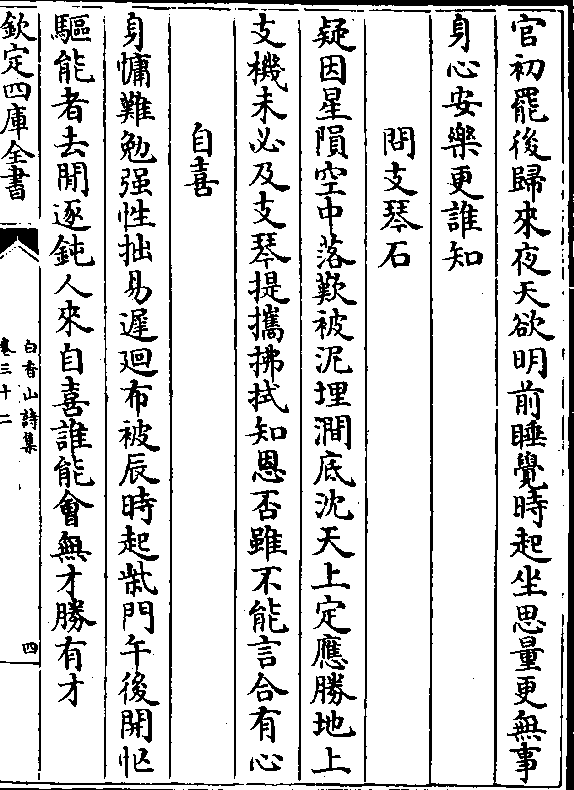 官初罷後歸來夜天欲明前睡覺時起坐思量更無事
身心安樂更誰知
問支琴石
疑因星隕空中落歎被泥埋澗底沈天上定應勝地上
支機未必及支琴提攜拂拭知恩否雖不能言合有心
自喜
身慵難勉强性拙易遲廻布被辰時起柴門午後開忙
驅能者去閒逐鈍人來自喜誰能會無才勝有才
欽定四庫全書
白香山詩集
卷三十二
四